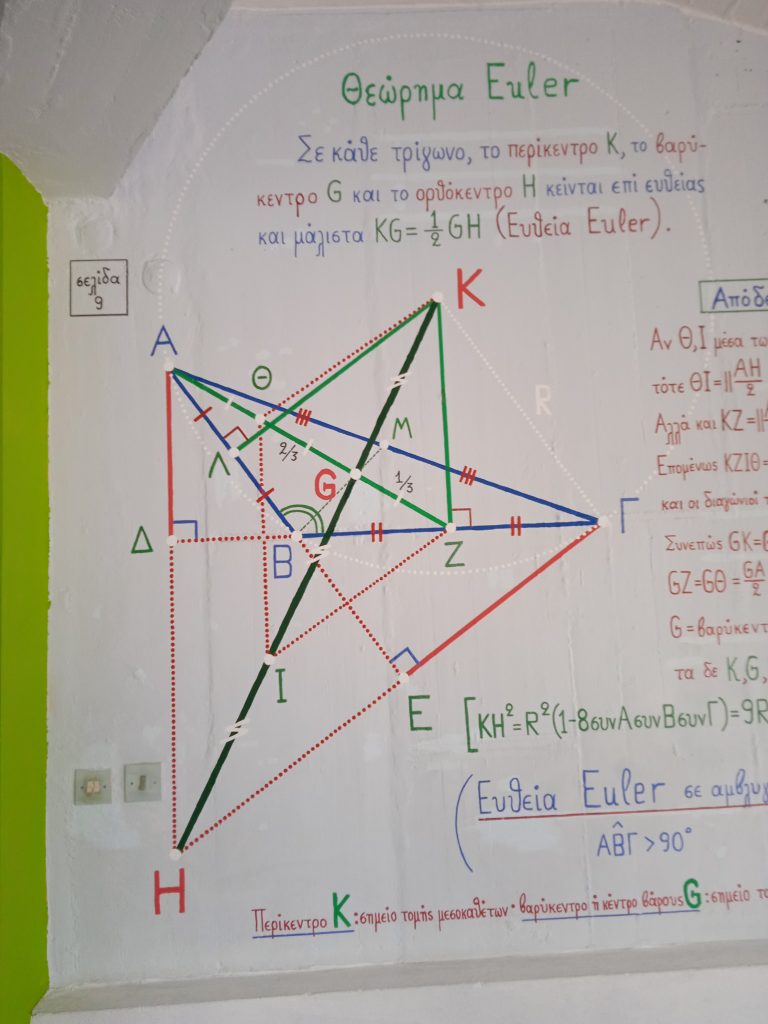 Θεώρημα Euler
Σε κάθε τρίγωνο, το περίκεντρο Κ, το βαρύ-
κεντρο G και το ορθόκεντρο Η κείνται επί ευθείας
και μάλιστα KG = 1/2 GH (Ευθεία Euler).
σελίδα
9
Κ
Α
Θ
R
Μ
Λ
2/3
G
1/3
Δ
Β
Ζ
Γ
Ι
Ε
Η
Αν Θ,Ι μέσα
τότε ΘΙ=||ΑΗ/2
Αλλά και ΚΖ=||
Επομένως ΚΖΙΘ=
και οι διαγώνιοι
Συνεπώς GK=
GZ=GΘ=GA/2
G=βαρύκεντ
τα δε K,G,
[ΚΗ²=R²(1-8συνΑσυνΒσυνΓ)=9R
(Ευθεία Euler σε αμβλυγ
ΑΒ̂Γ>90°
Περίκεντρο Κ: σημείο τομής μεσοκαθέτων· βαρύκεντρο ή κέντρο βάρους G: σημείο